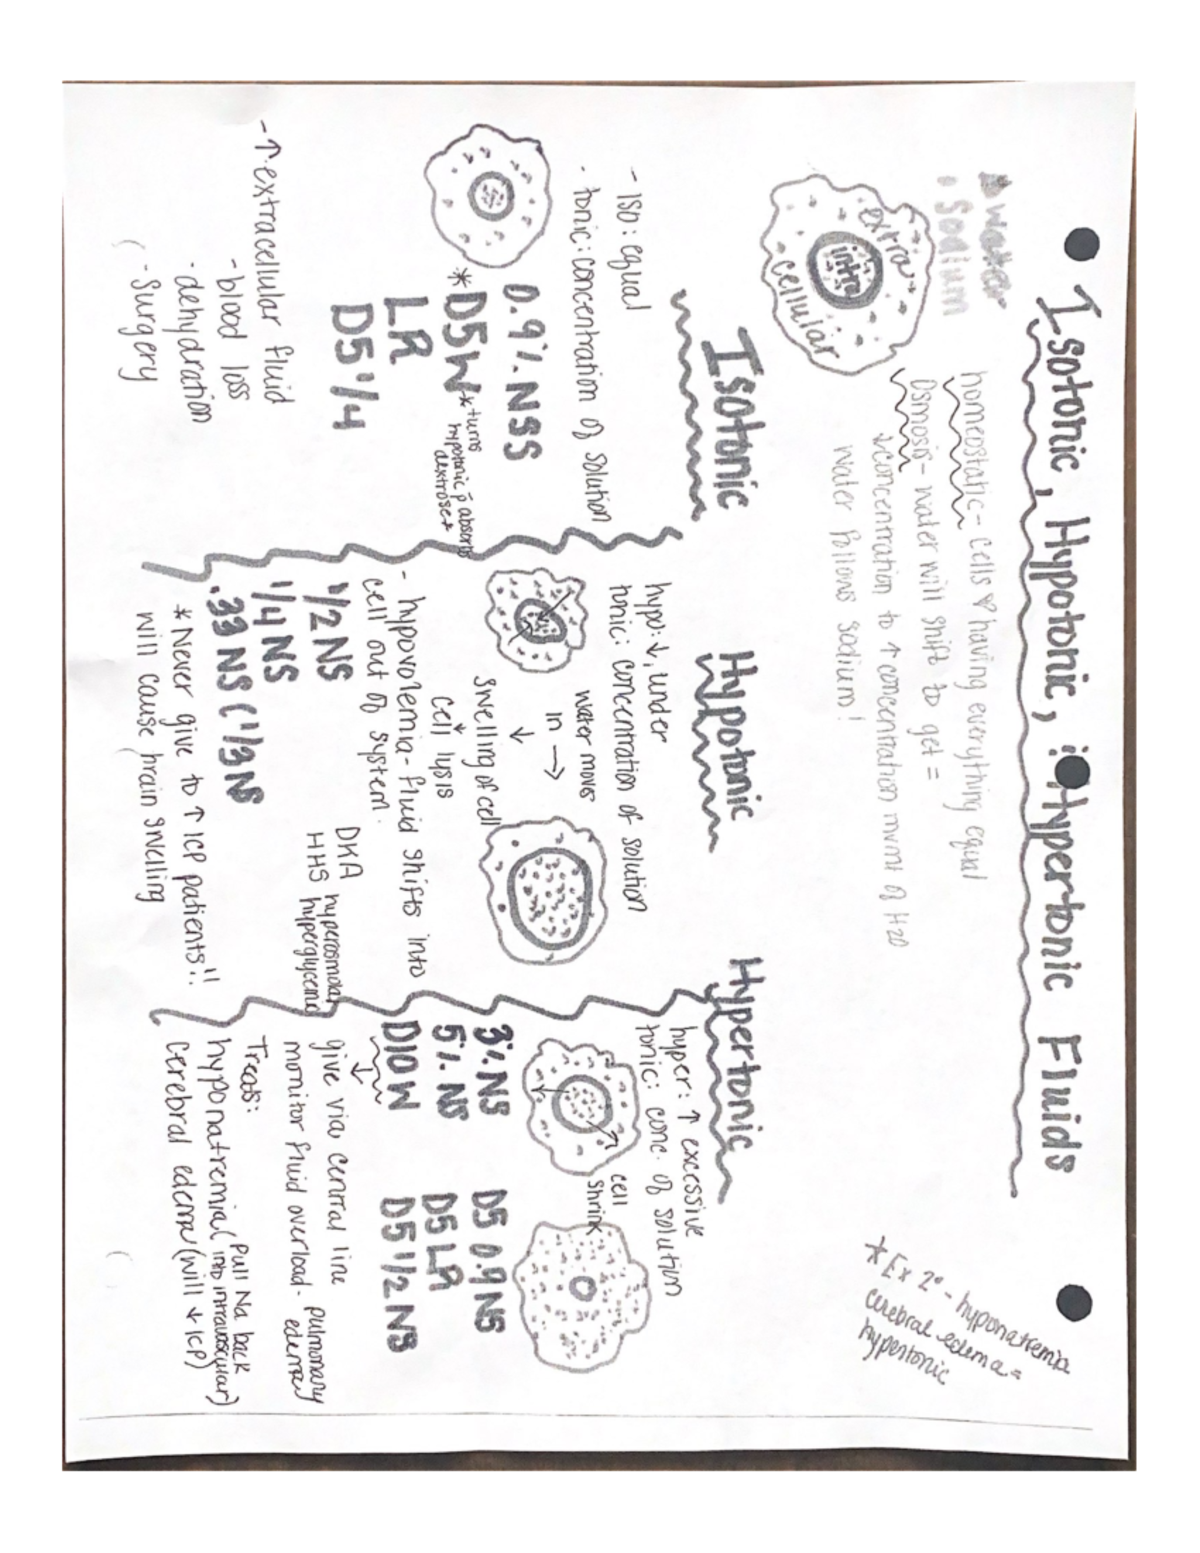 Isotonic, Hypotonic, : Hypertonic Fluids
water
sodium
extra
intra
cellular
homeostatic - cells ♡ having everything equal
osmosis - water will shift to get =
↓ concentration to ↑ concentration mvmt of H2O
water follows sodium!
*Ex 2° - hyponatremia
cerebral edema =
hypertonic
Isotonic
- ISO: equal
- tonic: concentration of solution
0.9% NSS
*D5W *turns
hypotonic p̄ absorb
dextrose*
LR
D5 1/4
- ↑ extracellular fluid
- blood loss
- dehydration
- Surgery
Hypotonic
hypo: ↓, under
tonic: concentration of solution
water moves
in →
↓
swelling of cell
↓
cell lysis
- hypovolemia - fluid shifts into
cell out of system.
1/2 NS
1/4 NS
.33 NS (1/3NS
DKA
HHS hyperosmolar
hyperglycemic
*Never give to ↑ ICP patients!!
will cause brain swelling
Hypertonic
hyper: ↑ excessive
tonic: conc. of solution
cell
shrink
3% NS
5% NS
D10W
D5 0.9 NS
D5 LR
D5 1/2 NS
↓
give via central line
monitor fluid overload - pulmonary
edema
Treats:
hyponatremia (pull Na back
into intravascular)
cerebral edema (will ↓ ICP)